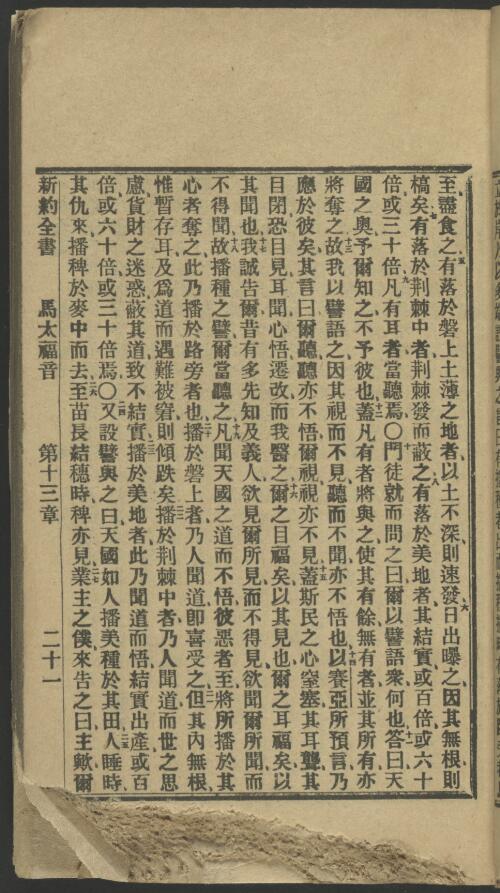 至盡食之有落於磐上土薄之地者以土不深則速發日出曝之因其無根則
槁矣有落於荆棘中者荆棘發而蔽之有落於美地者其結實或百倍或六十
倍或三十倍凡有耳者當聽焉〇門徒就而問之曰爾以譬語衆何也答曰天
國之奥予爾知之不予彼也蓋凡有者將與之使其有餘無有者並其所有亦
將奪之故我以譬語之因其視而不見聽而不聞亦不悟也以賽亞所預言乃
應於彼矣其言曰爾聽聽亦不悟爾視視亦不見蓋斯民之心窒塞其耳聾其
目閉恐目見耳聞心悟遷改而我醫之爾之目福矣以其見也爾之耳福矣以
其聞也我誠告爾昔有多先知及義人欲見爾所見而不得見欲聞爾所聞而
不得聞故播種之譬爾當聽之凡聞天國之道而不悟彼惡者至將所播於其
心者奪之此乃播於路旁者也播於磐上者乃人聞道卽喜受之但其内無根
惟暫存耳及爲道而遇難被窘則傾跌矣播於荆棘中者乃人聞道而世之思
慮貨財之迷惑蔽其道致不結實播於美地者此乃聞道而悟結實出產或百
倍或六十倍或三十倍焉〇又設譬與之曰天國如人播美種於其田人睡時
其仇來播稗於麥中而去至苗長結穗時稗亦見業主之僕來告之曰主歟爾
新約全書 馬太福音 第十三章 二十一